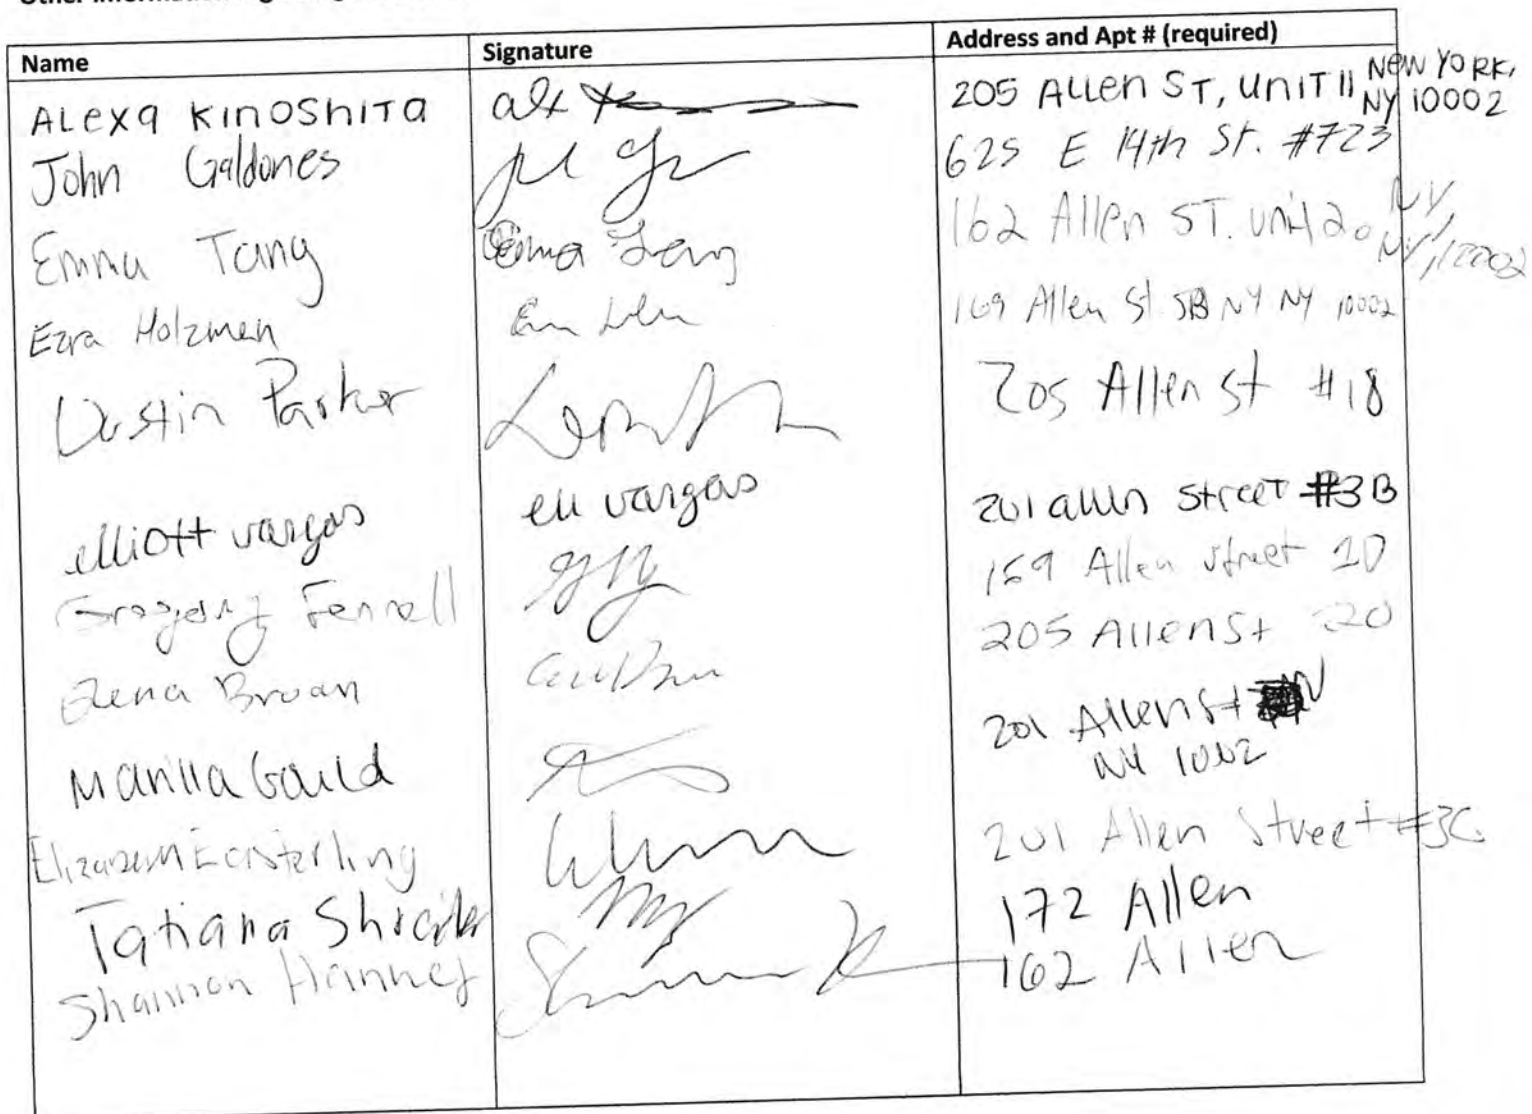 Name Signature Address and Apt # (required)
ALexa KINOSHITa 205 ALLen ST, UNIT 11 NEW YORK, NY 10002
John Galdones 625 E 14th St. #723
Emma Tang Emma Tang 162 Allen ST. unit 20 NY, NY, 10002
Ezra Holzman 169 Allen St NY NY 10002
Dustin Parker 205 Allen st #18
elliott vargas eli vargas 201 allen street #3B
Gregory Fennell 159 Allen Street 2D
205 Allen St 20
201 Allen St
NY 1002
Elizabeth Easterling 201 Allen Street #3C
Tatiana 172 Allen
Shannon 162 Allen